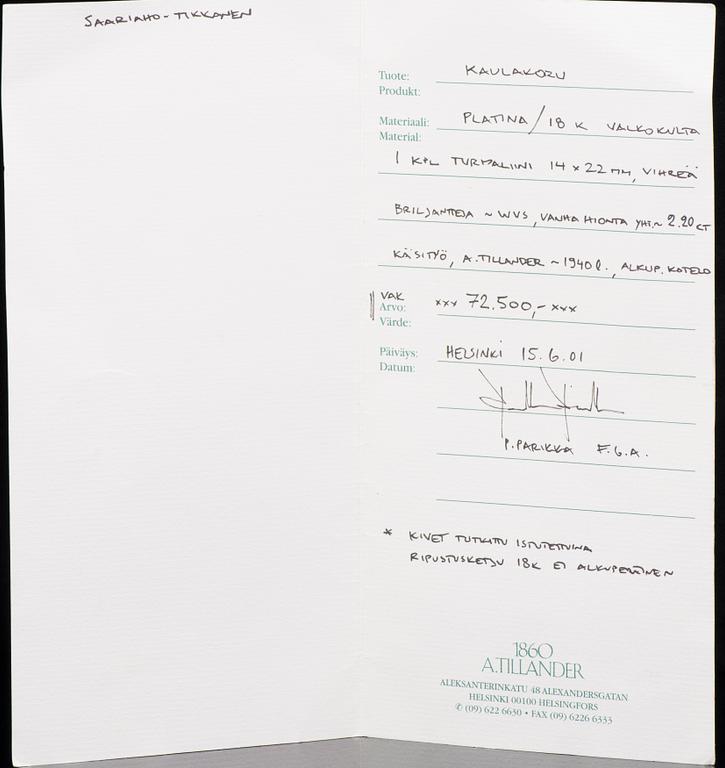 SAARIAHO-TIKKANEN
Tuote: KAULAKORU
Produkt:
Materiaali: PLATINA/18 K VALKOKULTA
Material:
1 KPL TURMALIINI 14 x 22 MM, VIHREÄ
BRILJANTTEJA ~ WVS, VANHA HIONTA YHT.~ 2.20 CT
KÄSITYÖ, A.TILLANDER ~1940 l., ALKUP. KOTELO
VAK
Arvo: xxx 72.500,- xxx
Värde:
Päiväys: HELSINKI 15.6.01
Datum:
P.PARIKKA F.G.A.
* KIVET TUTKITTU ISTUTETTUINA
RIPUSTUSKETJU 18K EI ALKUPERÄINEN
1860
A.TILLANDER
ALEKSANTERINKATU 48 ALEXANDERSGATAN
HELSINKI 00100 HELSINGFORS
✆ (09) 622 6630 • FAX (09) 6226 6333